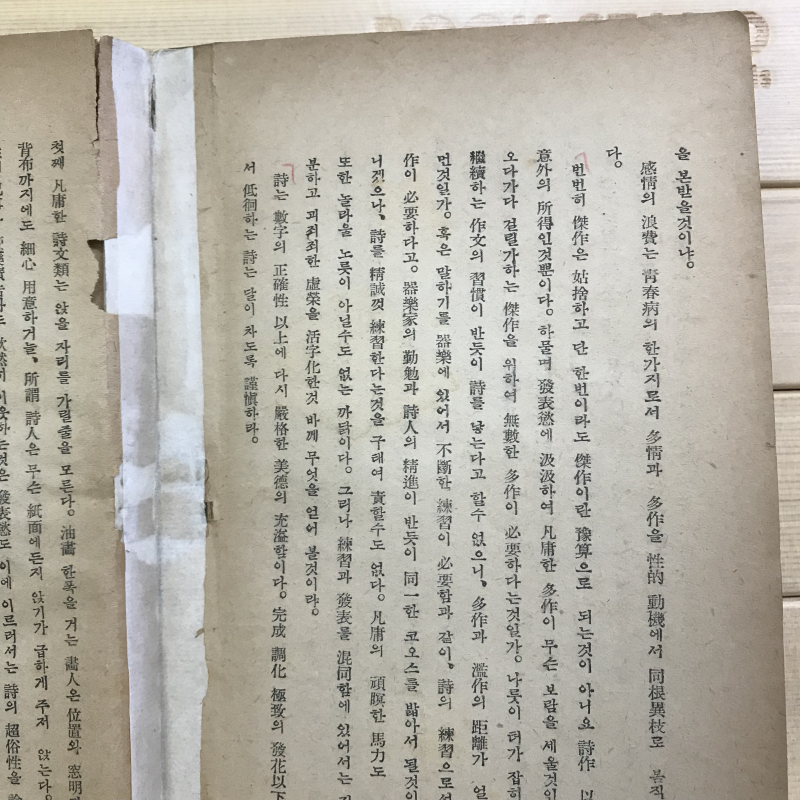 을 본받을것이냐。
感情의 浪費는 靑春病의 한가지로서 多情과 多作을 性的 動機에서 同根異枝로 봄직
다。
번번히 傑作은 姑捨하고 단 한번이라도 傑作이란 豫算으로 되는것이 아니요 詩作 以
意外의 所得인것뿐이다。하물며 發表慾에 汲汲하여 凡庸한 多作이 무슨 보람을 세울것인
오다가다 걸릴가하는 傑作을 위하여 無數한 多作이 必要하다는것일가。나룻이 터가 잡히
繼續하는 作文의 習慣이 반듯이 詩를 낳는다고 할수 없으니、多作과 濫作의 距離가 얼
먼것일가。혹은 말하기를 器樂에 있어서 不斷한 練習이 必要함과 같이、詩의 練習으로서
作이 必要하다고。器樂家의 勤勉과 詩人의 精進이 반듯이 同一한 코오스를 밟아서 될것이
니겠으나、詩를 精誠껏 練習한다는것을 구태여 責할수도 없다。凡庸의 頑瞑한 馬力도
또한 놀라울 노릇이 아닐수도 없는 까닭이다。그러나 練習과 發表를 混同함에 있어서는
분하고 괴죄죄한 虛榮을 活字化한것 바께 무엇을 얻어 볼것이랴。
詩는 數字의 正確性 以上에 다시 嚴格한 美德의 充溢함이다。完成 調化 極致의 發花以下
서 低徊하는 詩는 달이 차도록 謹愼하라。
첫째 凡庸한 詩文類는 앉을 자리를 가릴줄을 모른다。油畵 한폭을 거는 畵人은 位置와 窓明
背布까지에도 細心 用意하거늘、所謂 詩人은 무슨 紙面에든지 앉기가 급하게 주저 앉는다。
것은 發表慾도 이에 이르러서는 詩의 超俗性을